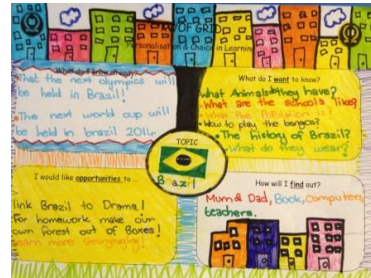 KWOF GRID
Personalisation & Choice in Learning
What do I know already?
That the next olympics will
be held in Brazil!
The next world cup will
be held in brazil 2014
What do I want to know?
What Animals do they have?
What are the schools like?
What the Population is?
How to play the bongos?
The history of Brazil?
What do they wear?
TOPIC
Brazil
I would like opportunities to ...
link Brazil to Drama!
For homework make our
own forest out of Boxes!
learn more Geography!
How will I find out?
Mum & Dad, Book, computers,
teachers.